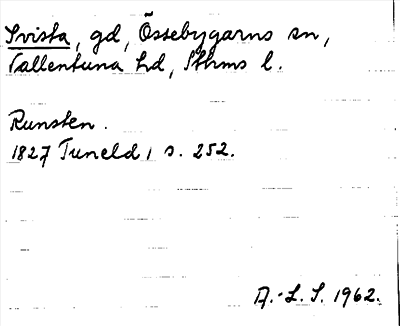 Svista, gd, Össebygarns sn,
Vallentuna hd, Sthms l.
Runsten.
1827 Tuneld 1 s. 252.
A.-L. S. 1962.